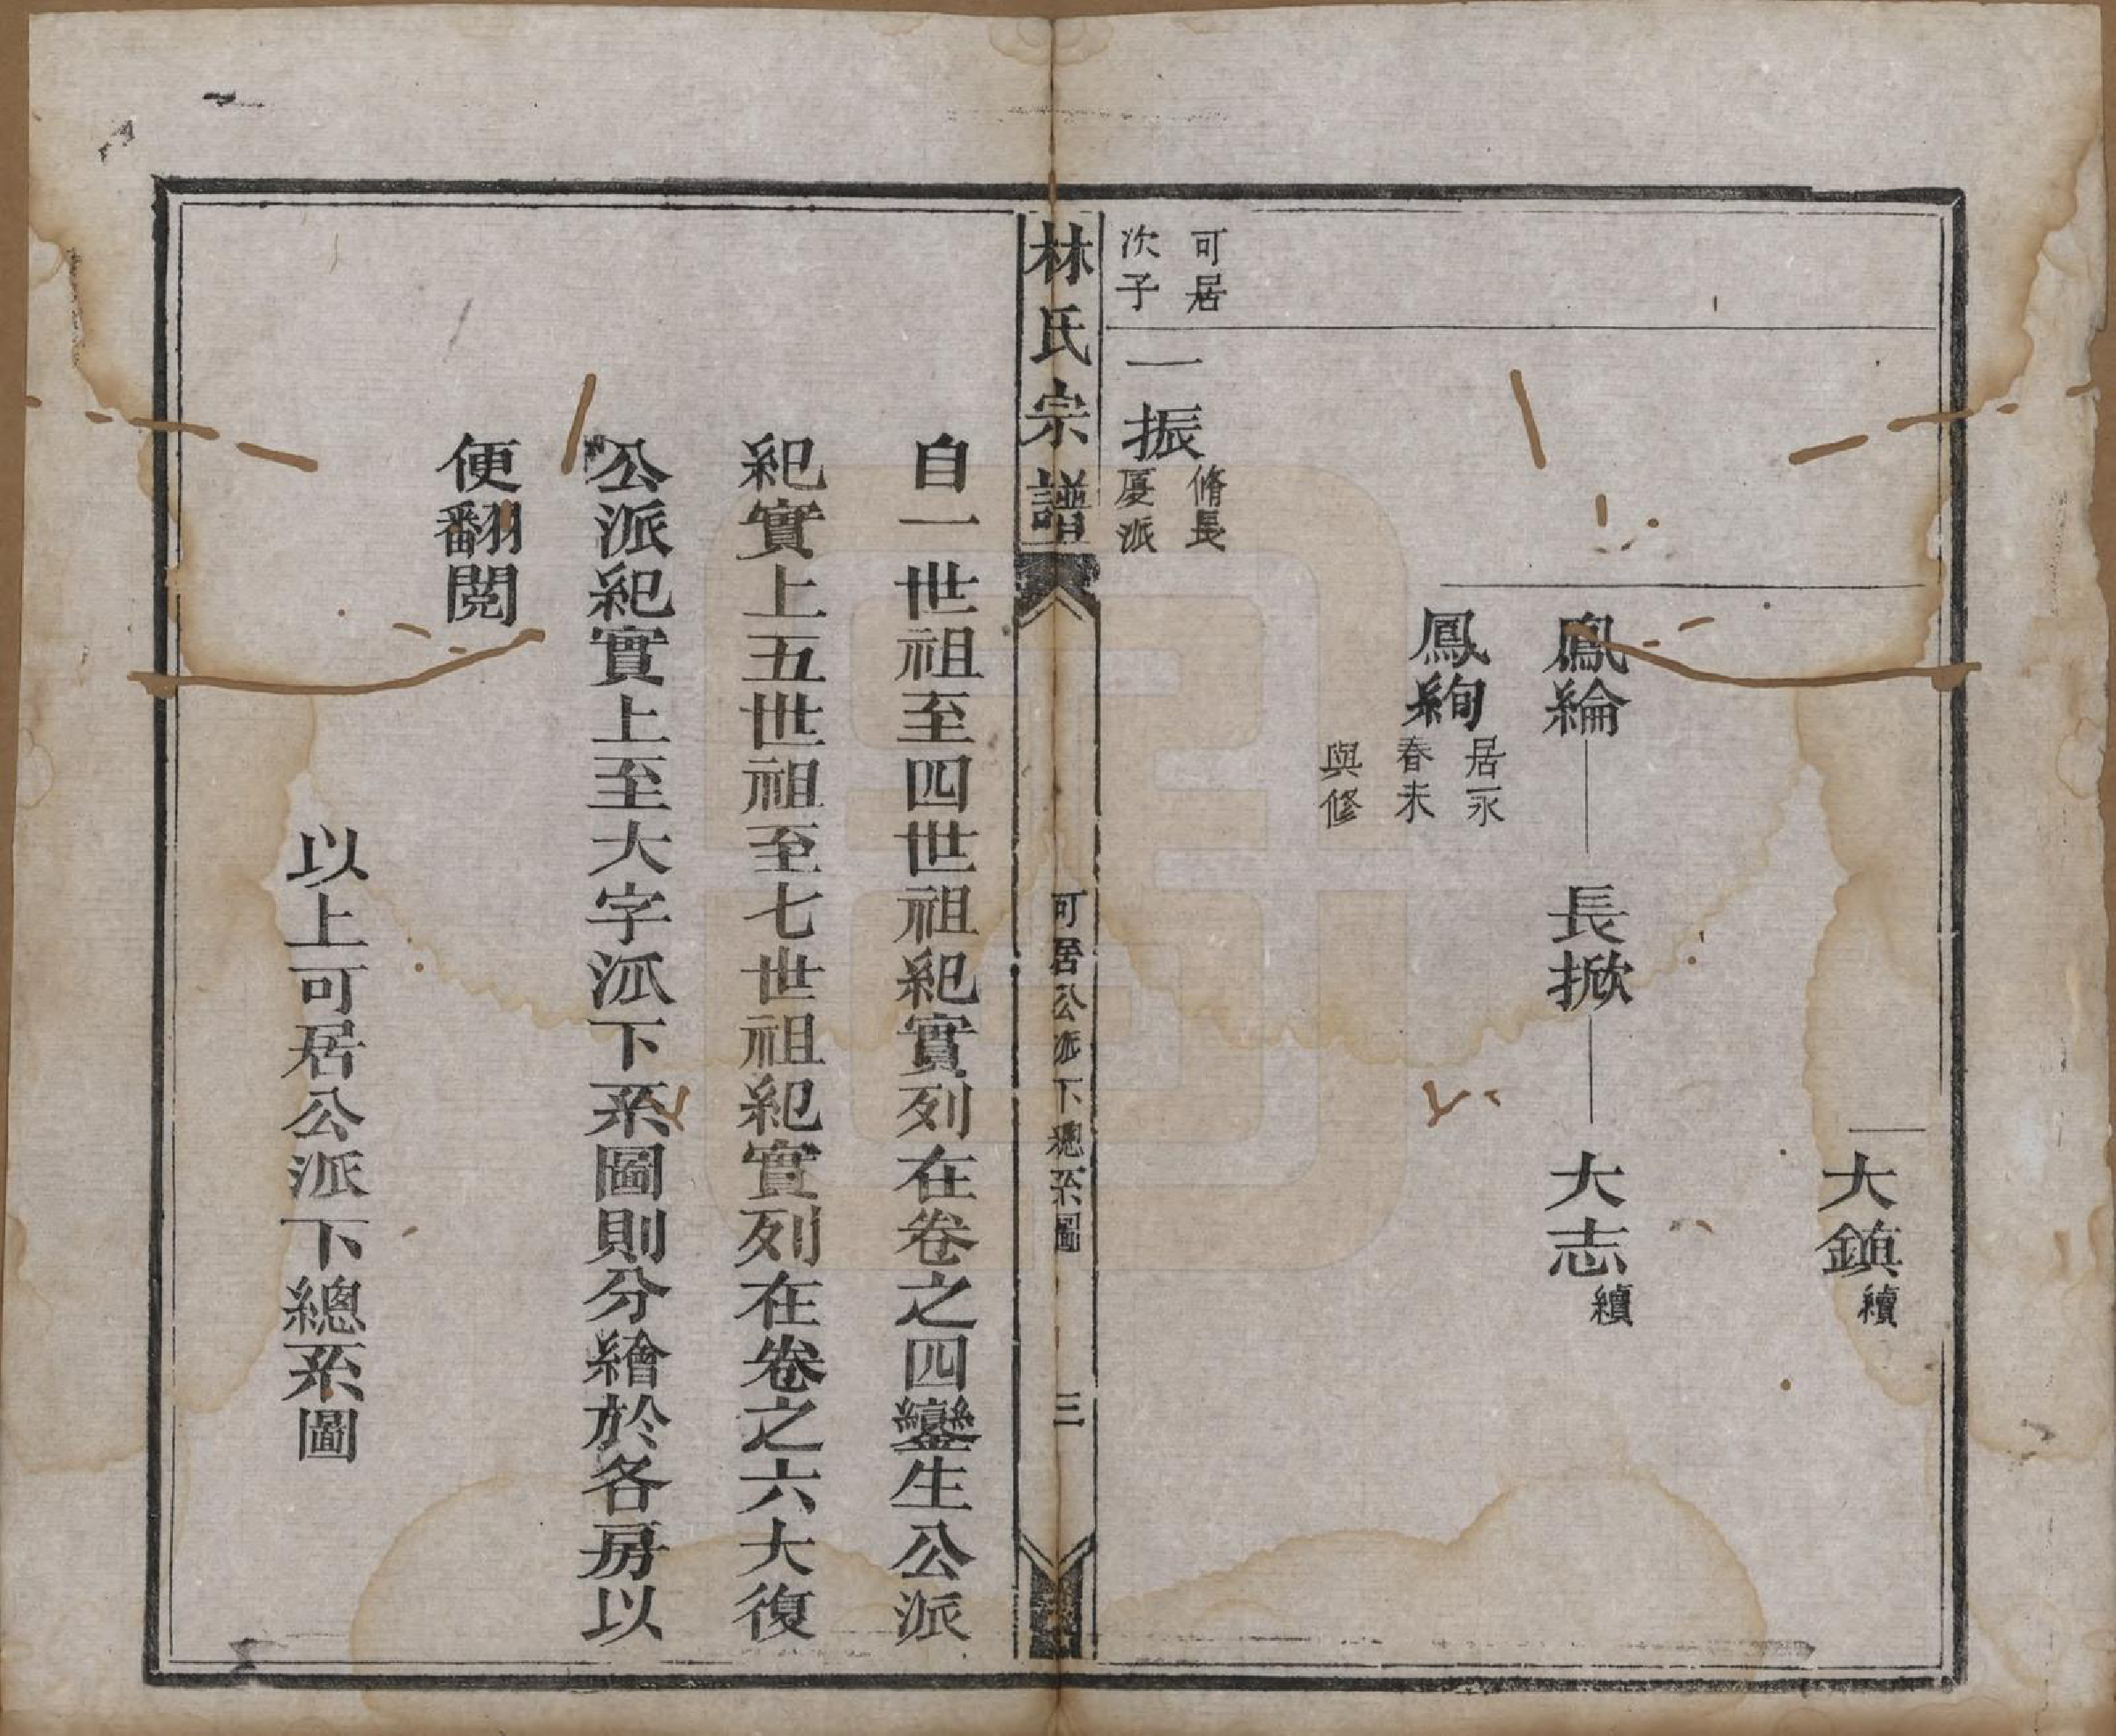 大鎮續
鳳綸 長掀 大志續
鳳絢居永春未與修
可居次子
一振脩長厦派
林氏宗譜 可居公派下總系圖 三
自一世祖至四世祖紀實列在卷之四鑾生公派
紀實上五世祖至七世祖紀實列在卷之六大復
公派紀實上至大字派下系圖則分繪於各房以
便翻閱
以上可居公派下總系圖